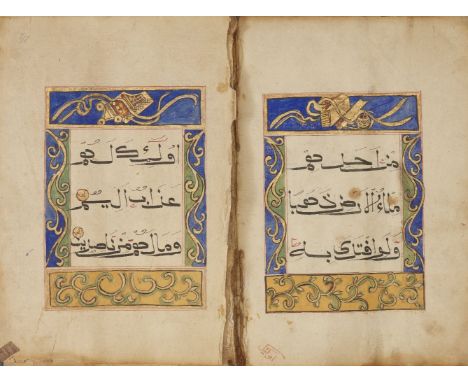 من أحدهم
ملء الارض ذهبا
ولو افتدى به
أولئك لهم
عذاب اليم
وما لهم من ناصرين